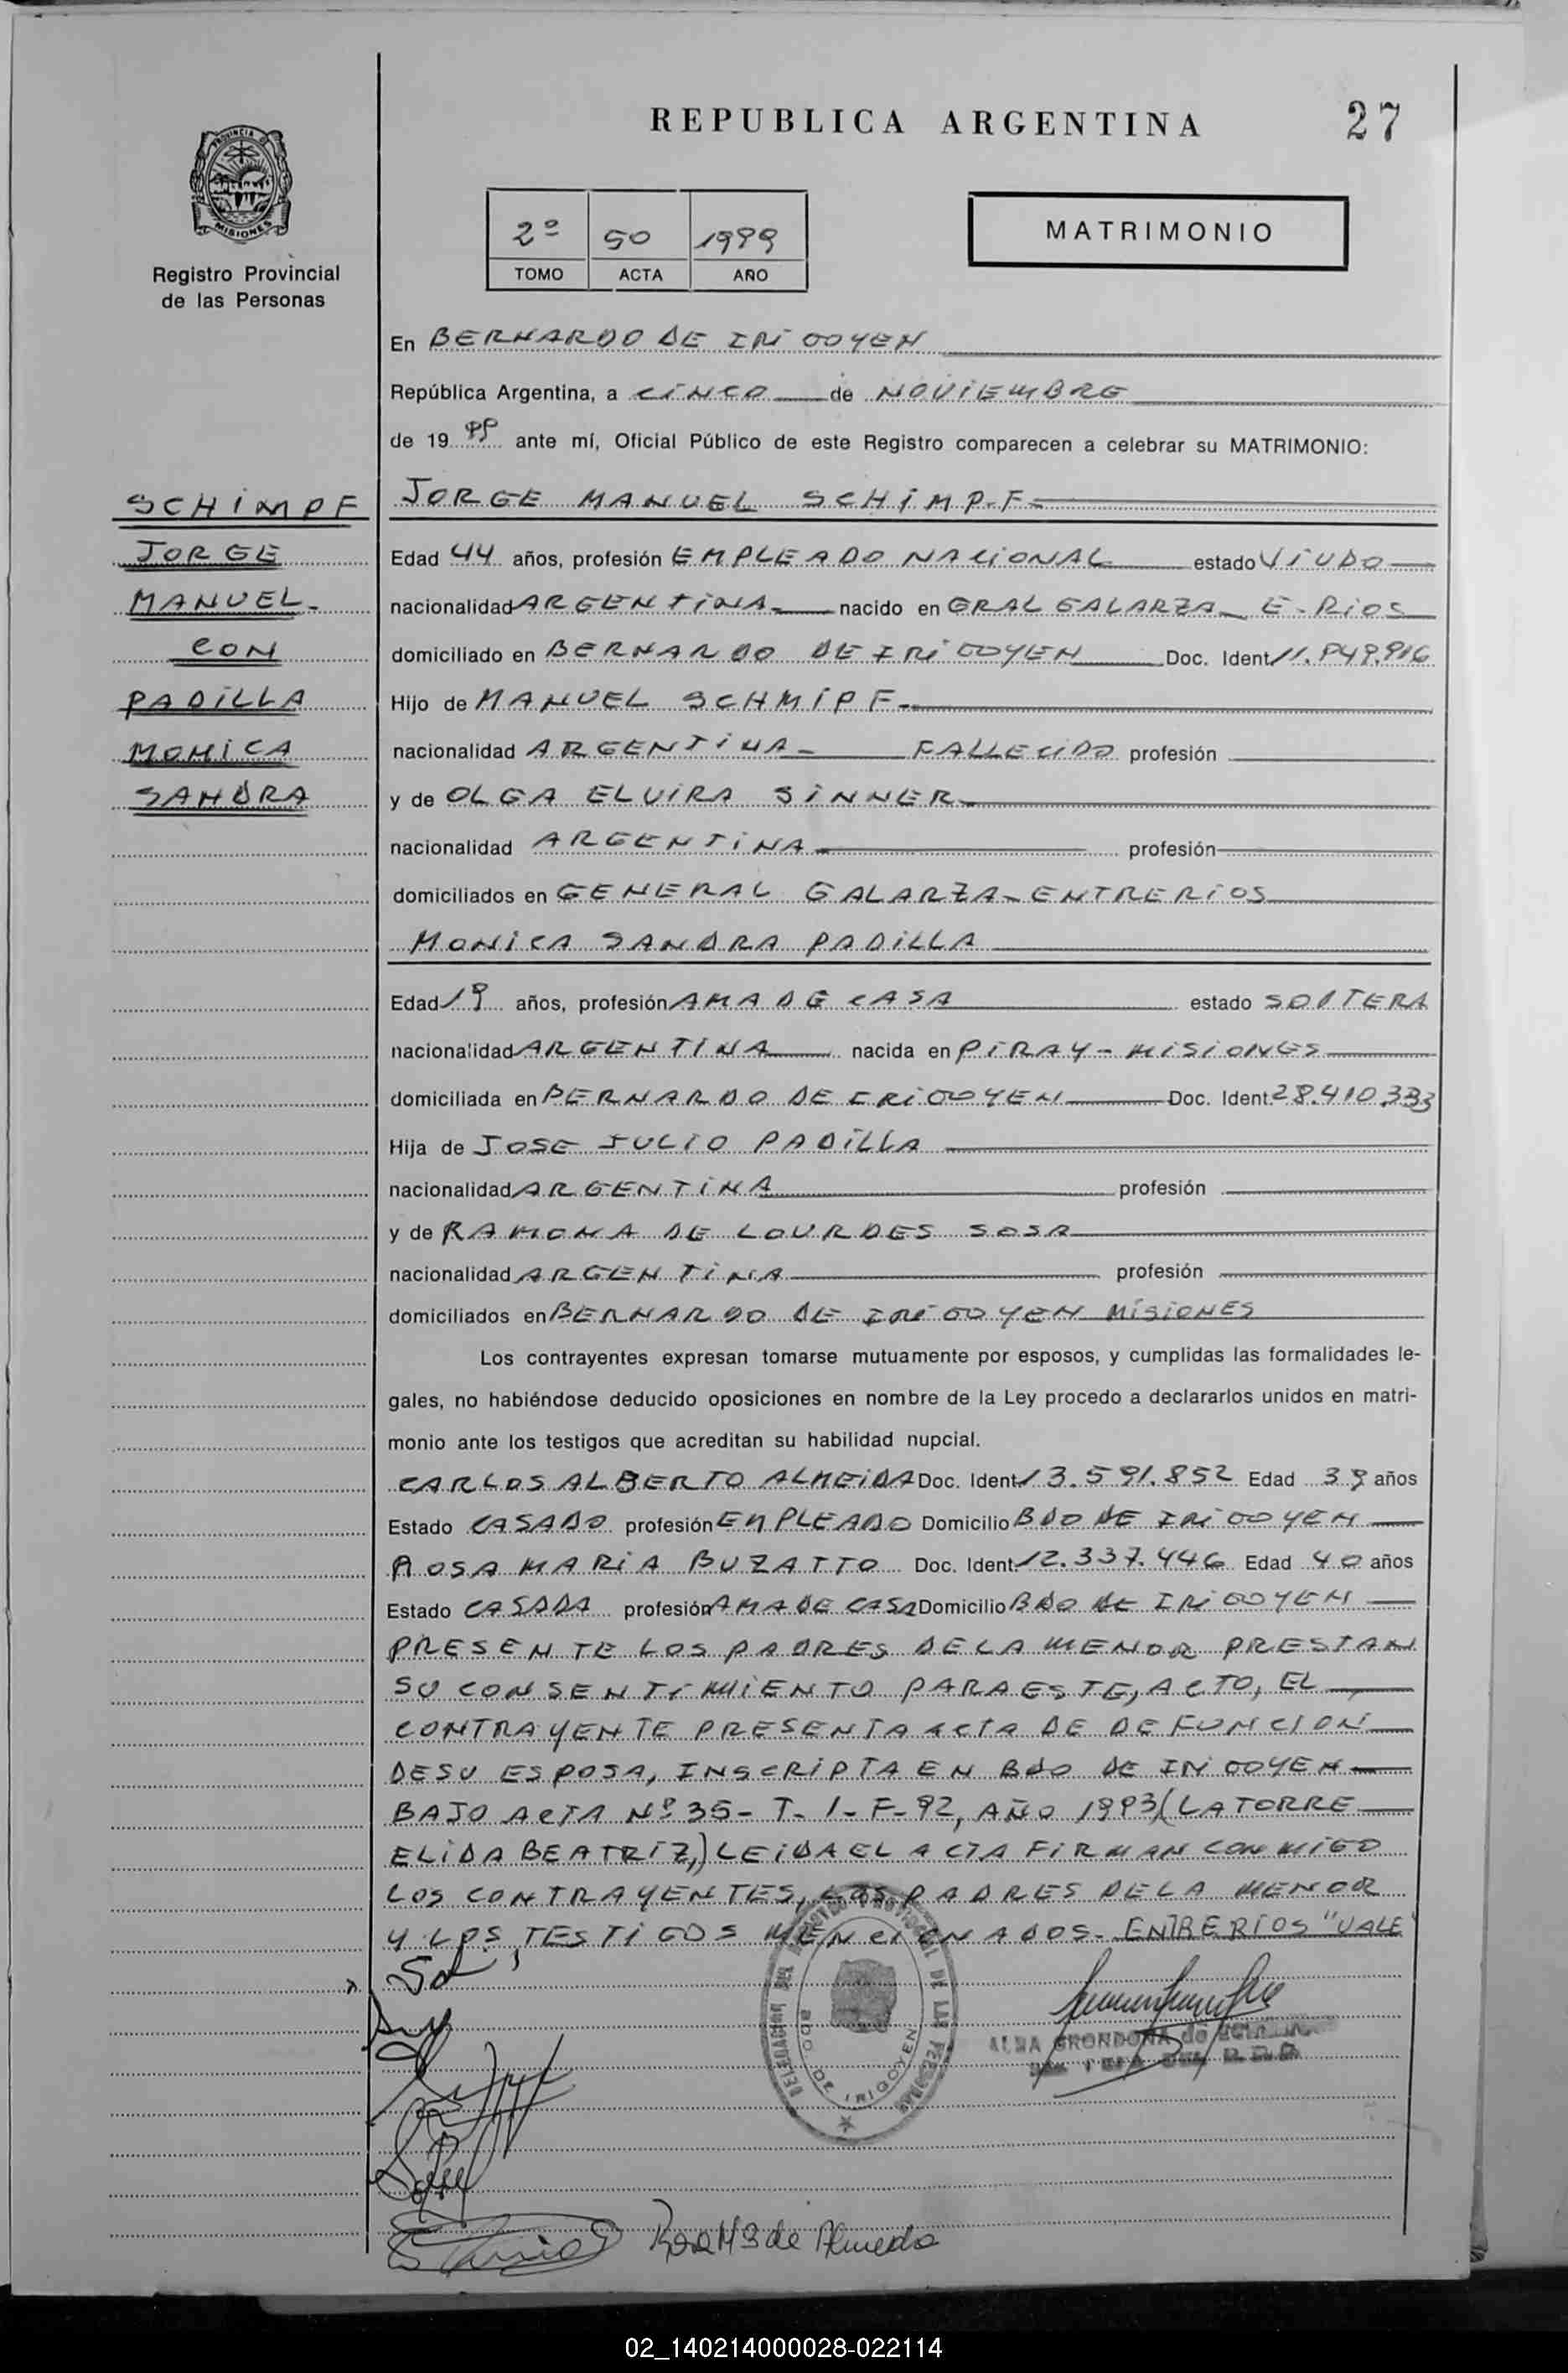 REPUBLICA ARGENTINA
27
PROVINCIA
MISIONES
Registro Provincial
de las Personas
2º 50 1999
TOMO ACTA AÑO
MATRIMONIO
En BERNARDO DE IRIGOYEN
República Argentina, a CINCO de NOVIEMBRE
de 19 99 ante mí, Oficial Público de este Registro comparecen a celebrar su MATRIMONIO:
SCHIMPF
JORGE
MANUEL-
CON
PADILLA
MONICA
SANDRA
JORGE MANUEL SCHIMPF
Edad 44 años, profesión EMPLEADO NACIONAL estado VIUDO
nacionalidad ARGENTINA nacido en GRAL GALARZA- E-RIOS
domiciliado en BERNARDO DE IRIGOYEN Doc. Ident.
Hijo de MANUEL SCHMIPF
nacionalidad ARGENTINA- FALLECIDO profesión
y de OLGA ELVIRA SINNER
nacionalidad ARGENTINA profesión
domiciliados en GENERAL GALARZA-ENTRERIOS
MONICA SANDRA PADILLA
Edad 19 años, profesión AMA DE CASA estado SOLTERA
nacionalidad ARGENTINA nacida en PIRAY-MISIONES
domiciliada en BERNARDO DE IRIGOYEN Doc. Ident. 28.410.333
Hija de JOSE JULIO PADILLA
nacionalidad ARGENTINA profesión
y de RAMONA DE LOURDES SOSA
nacionalidad ARGENTINA profesión
domiciliados en BERNARDO DE IRIGOYEN MISIONES
Los contrayentes expresan tomarse mutuamente por esposos, y cumplidas las formalidades le-
gales, no habiéndose deducido oposiciones en nombre de la Ley procedo a declararlos unidos en matri-
monio ante los testigos que acreditan su habilidad nupcial.
CARLOS ALBERTO ALMEIDA Doc. Ident. 13.591.852 Edad 39 años
Estado CASADO profesión EMPLEADO Domicilio BDO DE IRIGOYEN
ROSA MARIA BUZATTO Doc. Ident. 12.337.446 Edad 40 años
Estado CASADA profesión AMA DE CASA Domicilio BDO DE IRIGOYEN
PRESENTE LOS PADRES DE LA MENOR PRESTAN
SU CONSENTIMIENTO PARA ESTE, ACTO, EL
CONTRAYENTE PRESENTA ACTA DE DEFUNCION
DE SU ESPOSA, INSCRIPTA EN BDO DE IRIGOYEN
BAJO ACTA Nº 35- T-1-F-92, AÑO 1993 (LATORRE
ELIDA BEATRIZ,) LEIDA EL ACTA FIRMAN CONMIGO
LOS CONTRAYENTES, LOS PADRES DE LA MENOR
Y LOS TESTIGOS MENCIONADOS- ENTRERIOS "VALE"
DELEGACION DEL REGISTRO PROVINCIAL DE LAS PERSONAS
Bdo DE IRIGOYEN
ALBA GRONDONA de
de Almeida
02_140214000028-022114